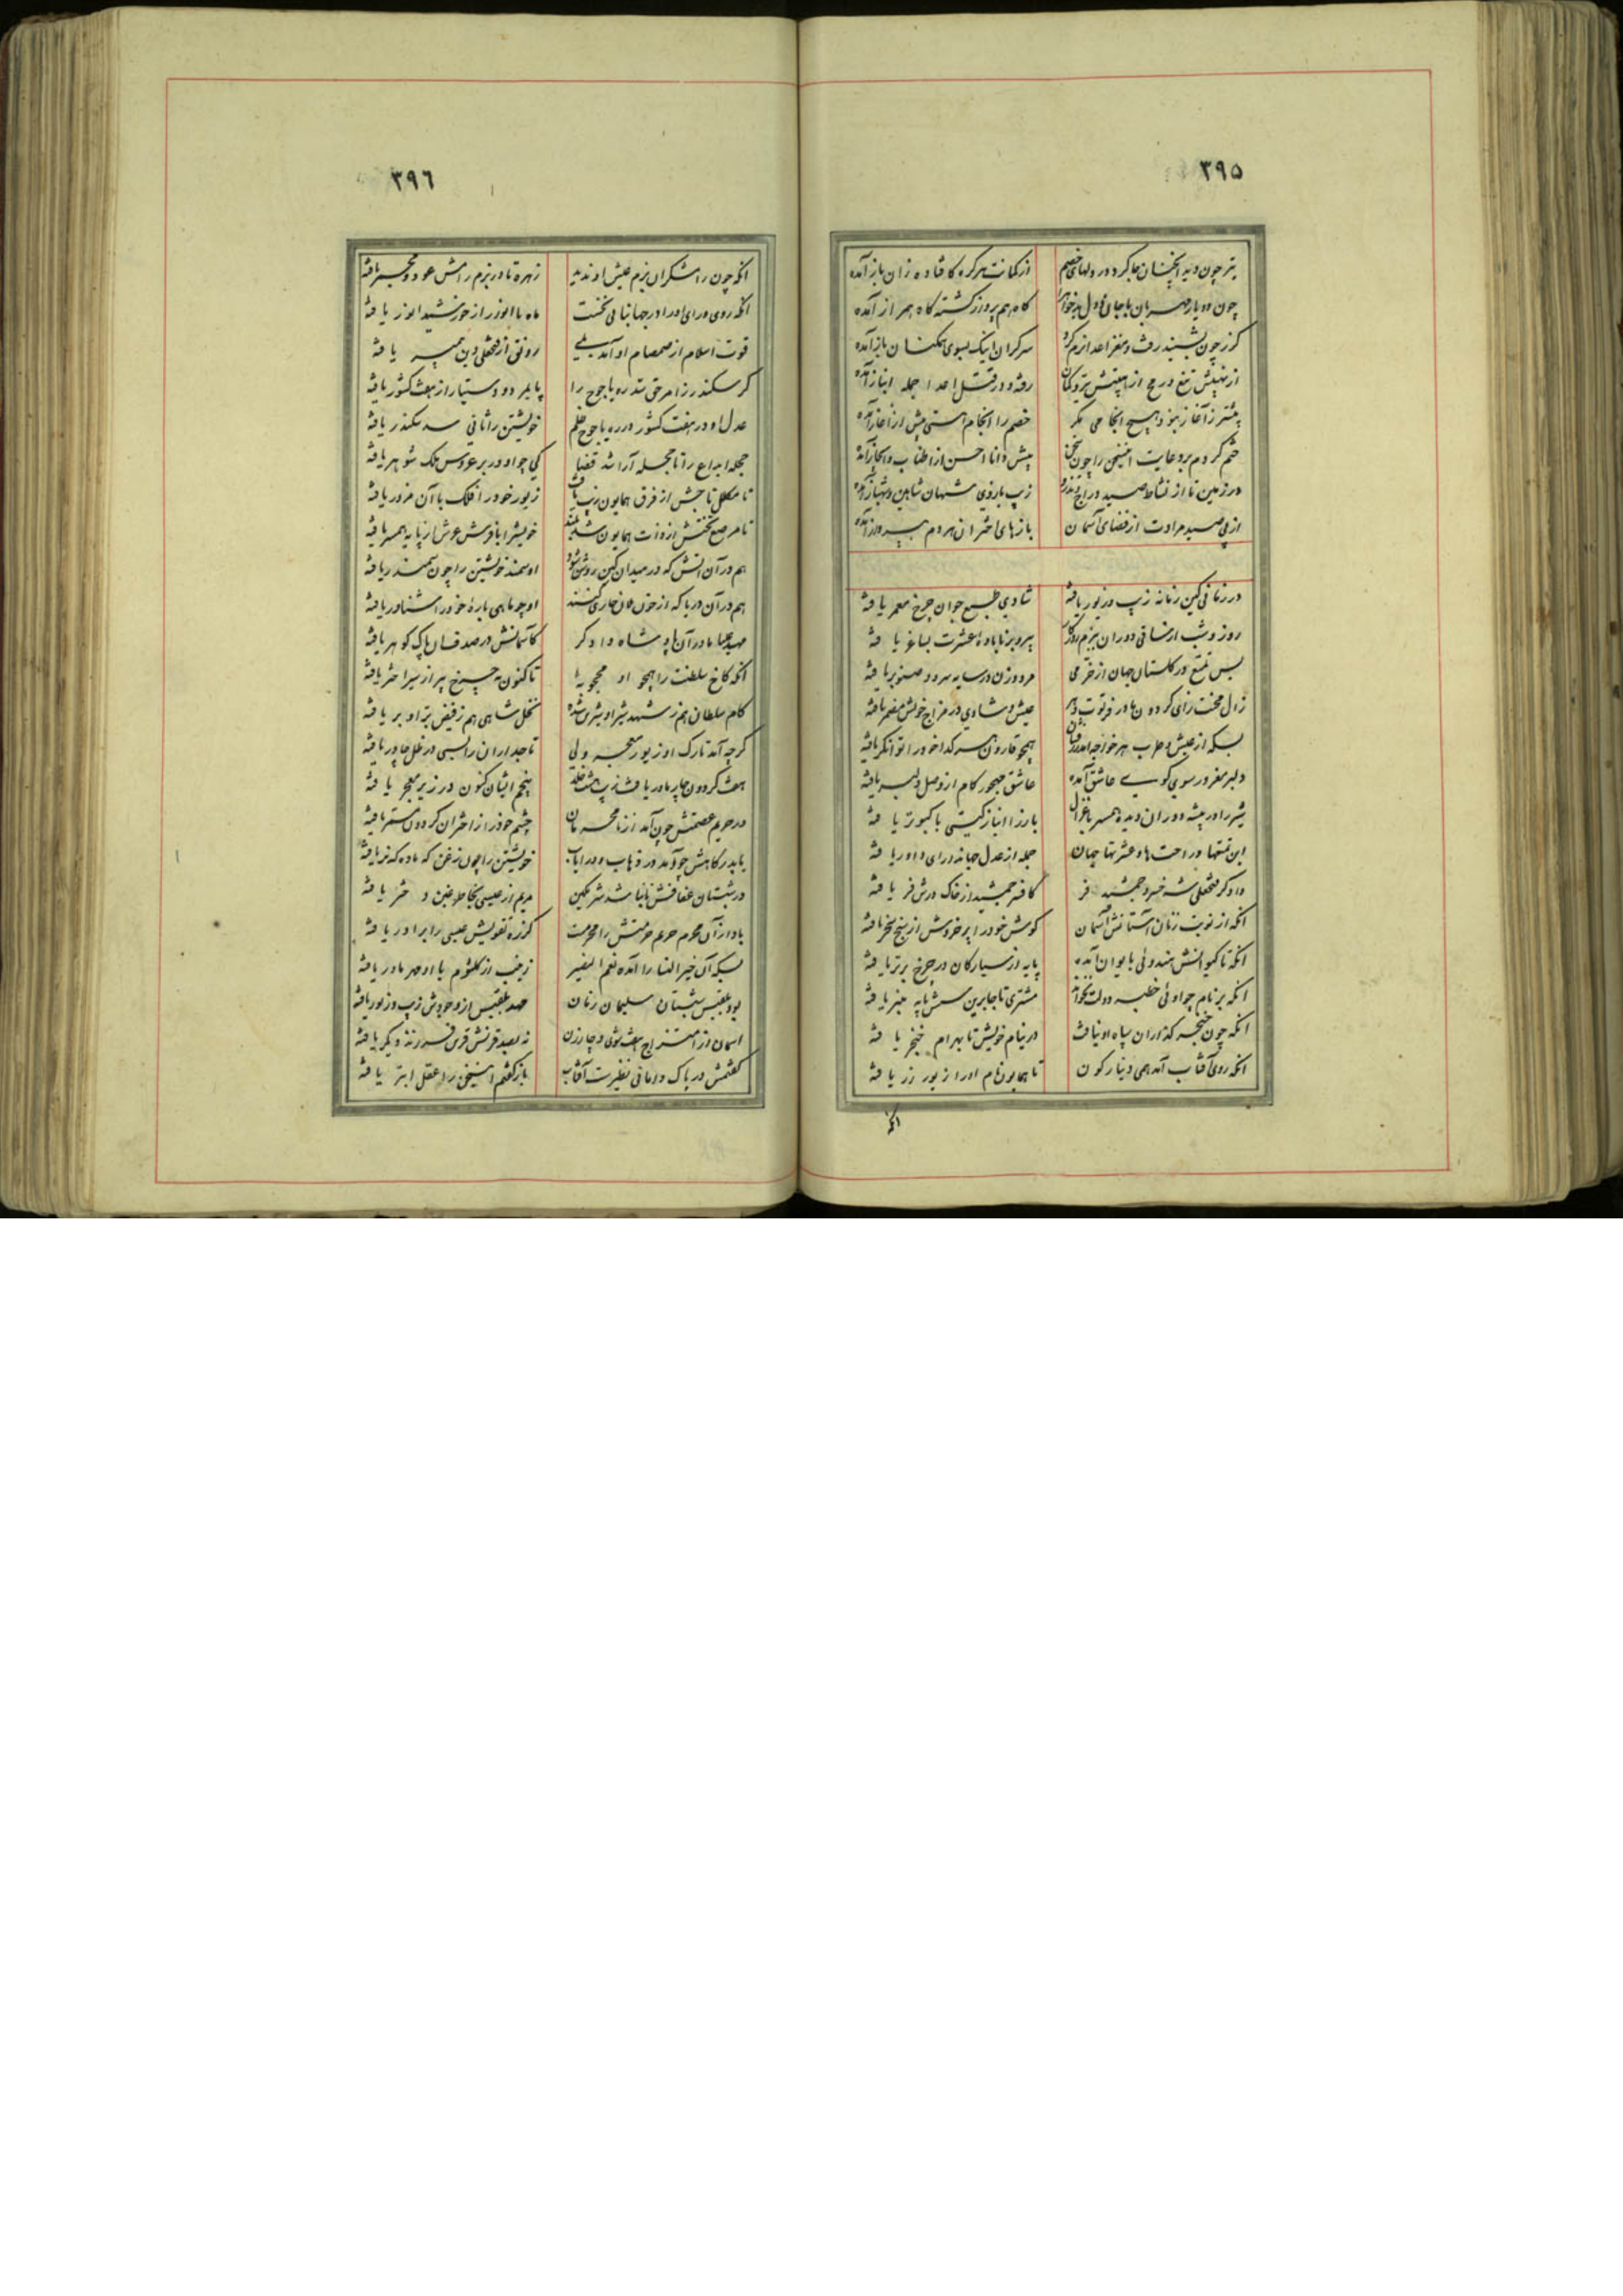 ٣٩٥
تیر چون دید اینچنان جا کرد در دلهای خصم از کمانت هر گره کافتاده زان باز آمده
چون دو یار مهربان با جان و دل گاه هم پرواز گشته گاه همراز آمده
گرز چون بشنید رفت و مغز اعدا نرم کرد سرگران اینک بسوی همکنان باز آمده
از تیغ در مح از تیر و کمان رفته و در قتل اعدا جمله انباز آمده
پیشتر ز آغاز نبود هیچ انجامی مگر خصم را انجام هستی پیش از آغاز آمده
ختم کردم بر دعایت این سخن را چون سخن پیش دانا احسن از اطناب و ایجاز آمده
در زمین تا از نشاط صید دراج و تذرو زیب بازوی شهان شاهین و شهباز آمده
از پی صید مرادت از فضای آسمان بازهای اختران هر دم به پرواز آمده
در زمانی کاین زمانه زیب و زیور یافته شادی طبع جوان چرخ معمر یافته
روز و شب از ساقی دوران ببزم روزگار پیر و برنا باده عشرت بساغر یافته
بس تمتع در گلستان جهان از خرمی مرد و زن در سایه سرو و صنوبر یافته
زال محنت زای گردون مادر فرتوت دهر عیش و شادی در مزاج خویش مضمر یافته
بسکه از عیش و طرب هر خواجه همچو قارون هر گدا خود را توانگر یافته
دلبر مغرور سوی کوی عاشق آمده عاشق مهجور کام از وصل دلبر یافته
شیر را در بیشه دوران دیده همسر با غزال باز را انباز گیتی با کبوتر یافته
این تمتعها و راحت ها و عشرتها جهان جمله از عدل جهاندارای داور یافته
دادگر فتحعلی شه خسرو جمشید فر کافسر جمشید از خاک درش فر یافته
آنکه از نوبت زنان آستانش آسمان گوش خود را پر خروش از پنج سنجر یافته
آنکه تا کیوانش هندوئی بایوان آمده پایه از سیارگان در چرخ برتر یافته
آنکه بر نام چو اوئی خطبه دولت بخواند مشتری تا جا برین شش پایه منبر یافته
آنکه چون خنجر گذاران سپاه او نیافت در نیام خویش تا بهرام خنجر یافته
آنکه روی آفتاب آمد همی دینار گون تا همایون نام او را زیور زر یافته
آنکه
٣٩٦
آنکه چون رامشگران بزم عیش او ندید زهره تا در بزم رامش عود و مجمر یافته
آنکه روی و رای او را در جهانبانی نخست ماه با انور از خورشید انور یافته
قوت اسلام از صمصام او آمد بلی رونق از فتحعلی دین پیمبر یافته
گر سکندر رزا مر حق سد ره یاجوج را پایمرد و دستیار از هفت کشور یافته
عدل او در هفت کشور در ره یاجوج ظلم خویشتن را ثانی سد سکندر یافته
حجله ابداع را تا حجله آرا شد قضا کی چو او در بر عروس ملک شوهر یافته
تا مکلل تاجش از فرق همایون زیب یافت زیور خود را فلک با آن مزور یافته
تا مرصع تختش از ذات همایون شد بلند خویش را با فرش عرش از پایه همسر یافته
هم در آن آتش که در میدان کین روشن شود او سمند خویشتن را چون سمندر یافته
هم در آن دریا که از خون جاری کنند او چو ماهی باره خود را شناور یافته
مهد علیا مادر آن پادشاه دادگر کآسمانش در صدف سان پاک گوهر یافته
آنکه کاخ سلطنت را همچو او محجوبه تا کنون نه چرخ پر از سیر اختر یافته
کام سلطان هم ز شهد شیر او شیرین شده نخل شاهی هم ز فیض بر او بر یافته
گرچه آمد تارک او زیور معجر ولی تاجداران را بسی در ظل چادر یافته
هفت گردون چار مادر یافت زیب هشت خلد پنجم ایشان کنون در زیر معجر یافته
در حریم عصمتش چون آمد از نامحرمان چشم خود را ز اختران گردون مستر یافته
با پدر گاهش چو آمد در ذهاب و در ایاب خویشتن را چون زغن که ماده که نر یافته
در شبستان عفافش تا نباشد شرمگین مریم از عیسی بخاطر دختر یافته
باد از آن محروم حریم حرمتش را محرمت کز ره تقویش عیسی را برادر یافته
بسکه آن خیر النسا را آمده نعم النظیر زینب از کلثوم با او مهر مادر یافته
بود بلقیس شبستان سلیمان زمان صد بلقیس از وجودش زیب و زیور یافته
آسمان از امتزاج هفت شوی و چار زن نه بصد قرنش قرین فرزند دیگر یافته
گفتمش در پاک دامانی نظیرت آفتاب باز گفتم این سخن را عقل ابتر یافته